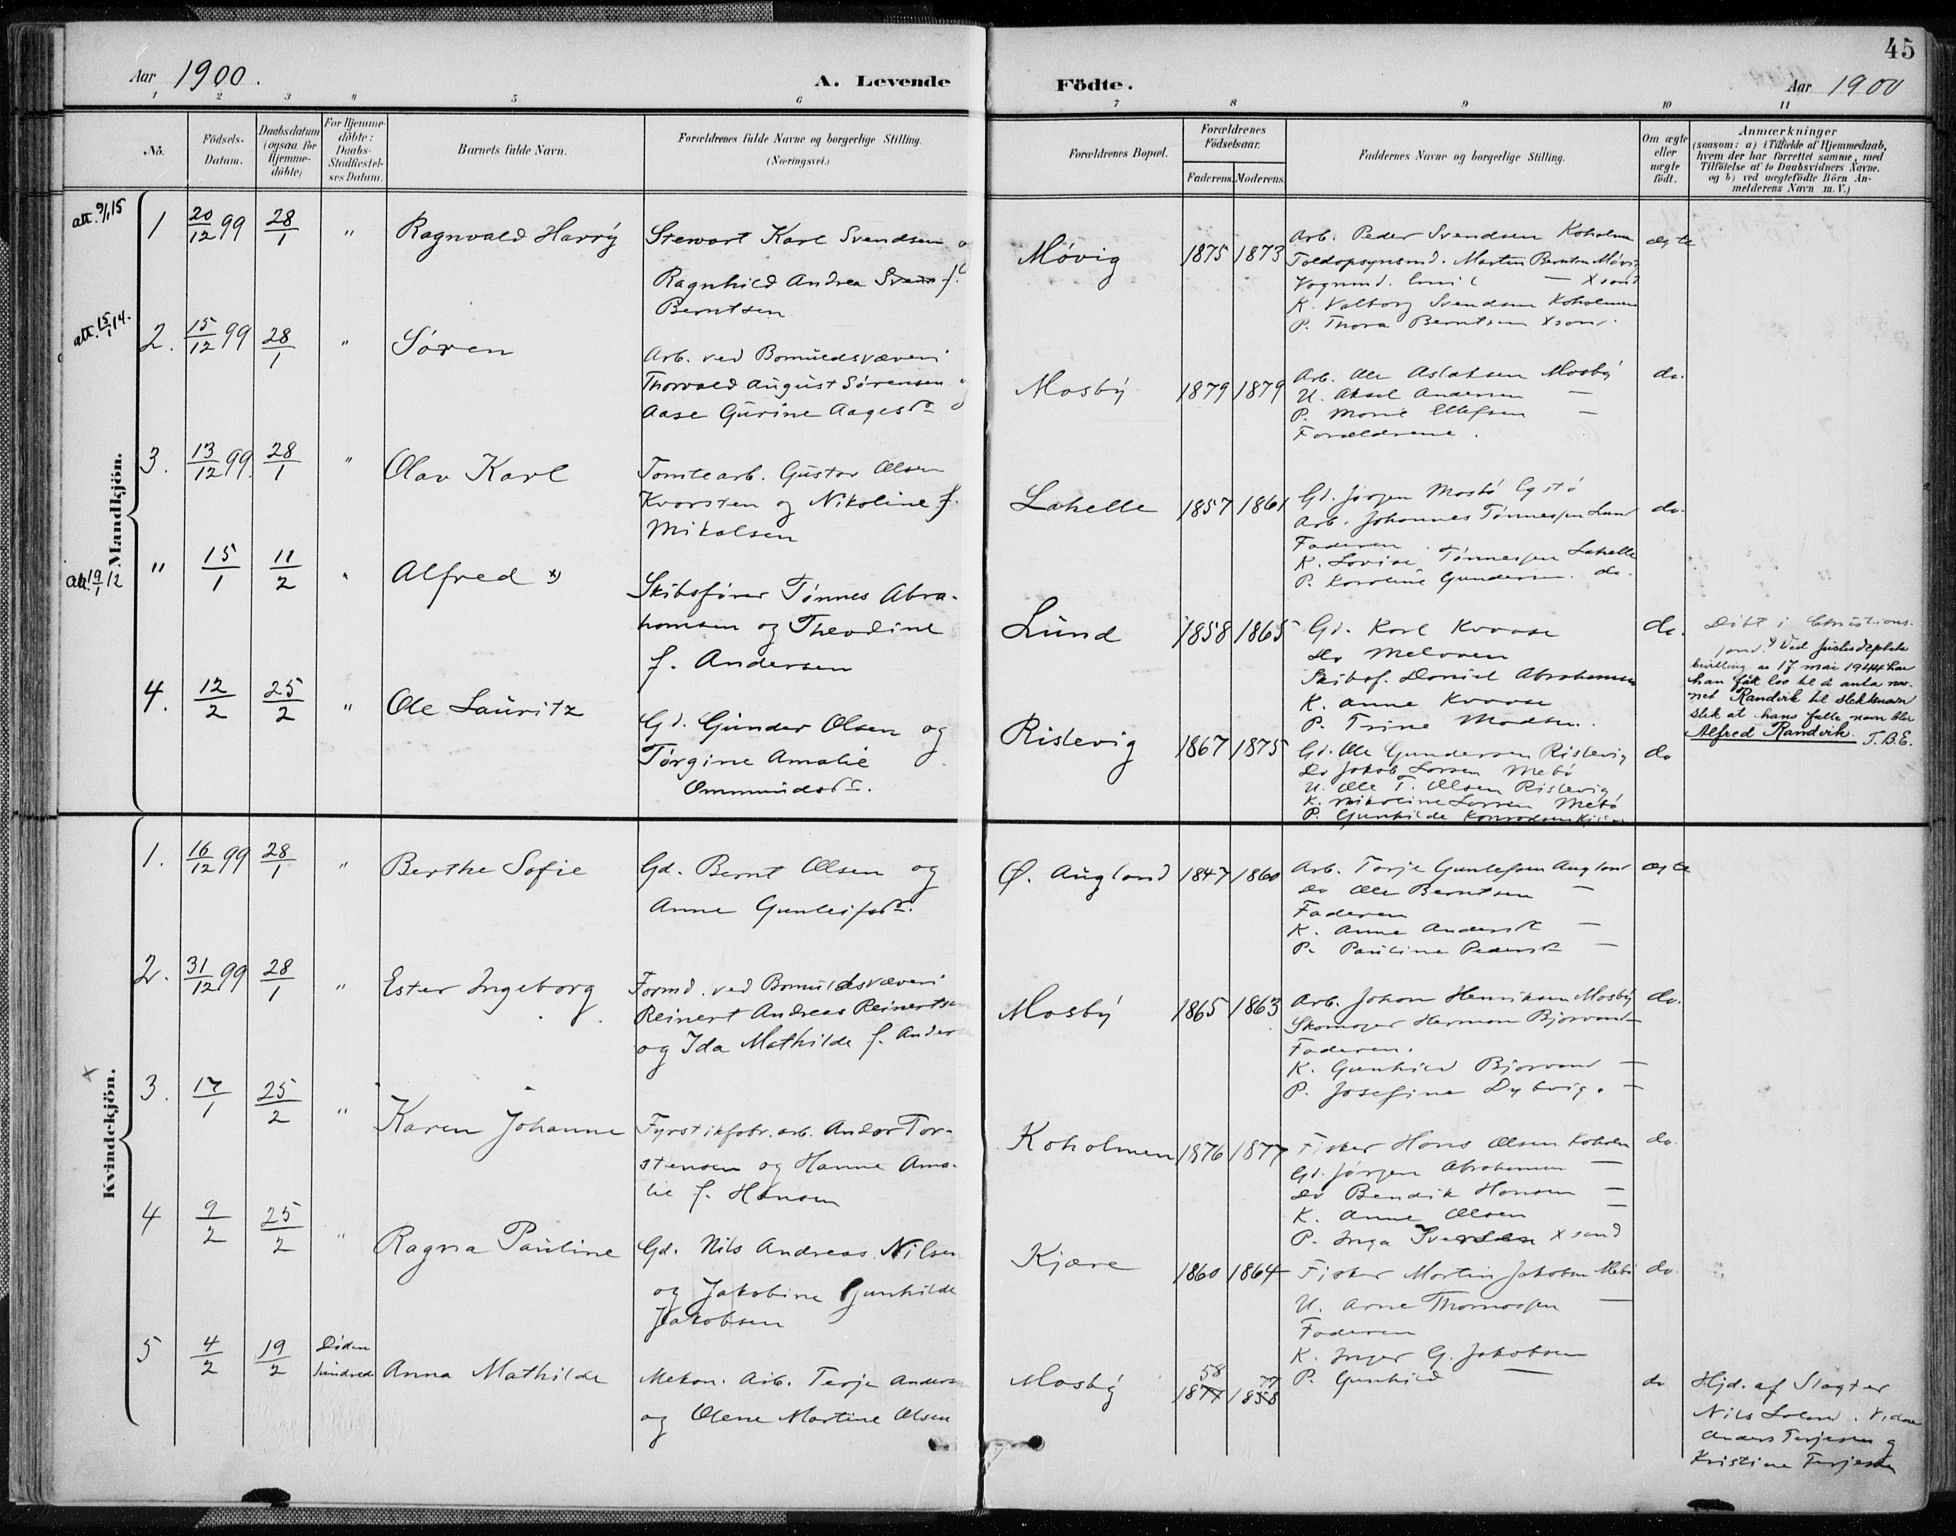 45
Aar 1900.
A. Levende
Födte.
Aar 1900
1 2 3 4 5 6 7 8 9 10 11
No.
Födsels-
Datum.
Daabsdatum
(ogsaa for
Hjemme-
döbte)
For Hjemme-
döbte:
Daabs-
Stadfæstel-
ses Datum.
Barnets fulde Navn.
Forældrenes fulde Navne og borgerlige Stilling.
(Næringsvei.)
Forældrenes Bopæl.
Forældrenes
Födselsaar.
Faderens. Moderens.
Faddernes Navne og borgerlige Stilling.
Om ægte
eller
uægte
födt.
Anmærkninger
(saasom: a) i Tilfælde af Hjemmedaab,
hvem der har forrettet samme, med
Tilföielse af to Daabsvidners Navne.
og b) ved uægtefödte Börn An-
melderens Navn m. V.)
Mandkjön.
att. 9/1 15
1 20/12 99 28/1 " Ragnvald Harry
Stewart Karl Svendsen og
Ragnhild Andrea f.
Berntsen
Møvig 1875 1873
Arb. Peder Svendsen Koholmen
Toldopsynsmd. Martin Berntsen Møvig
Vognmd. Emil — Xsand
K. Valborg Svendsen Koholmen
P. Thora Berntsen Xsand.
ægte
att. 15/1 14.
2. 15/12 99 28/1 " Søren
Arb. ved Bomuldsvæveri
Thorvald August Sørensen og
Aase Gurine Aagesd.
Mosby 1879 1879
Arb. Ole Aslaksen Mosby
U. Aksel Andersen —
P. Marie Ellefsen —
Forældrene.
do.
3. 13/12 99. 28/1 " Olav Karl
Tomtearb. Gustav Olsen
Kvarsten og Nikoline f.
Mikalsen
Lahelle 1857 1861
Gd. Jørgen Mosbø
Arb. Johannes Tønnessen Lund
Faderen.
K. Lovise Tønnessen Lahelle
P. Karoline Gundersen. do.
do.
att. 19/1 12
" 15/1 11/2 " Alfred x)
Skibsfører Tønnes Abra-
hamsen og Theodine
f. Andersen
Lund 1858 1865
Gd. Karl Kvaase
do
Skibsf. Daniel Abrahamsen
K. Anne Kvaase
P. Trine Madsen.
do.
Døbt i Christians-
sand. x) Ved justisdeptets
bevilling av 17. mai 1944 har
han fått lov til å anta nav-
net Randvik til slektsnavn
slik at hans fulle navn blir
Alfred Randvik. T.B.E.
4. 12/2 25/2 " Ole Lauritz
Gd. Gunder Olsen og
Tørgine Amalie
Ommundsd.
Rislevig 1867 1875
Gd. Ole Gundersen Rislevig
do Jakob Larsen Mebø
U. Ole T. Olsen Rislevig
K. Nikoline Larsen Mebø
P. Gunhilde
do
Kvindekjön.
1. 16/12 99 28/1 " Berthe Sofie
Gd. Bernt Olsen og
Anne Gunleifsd.
Ø. Augland 1847 1860
Arb. Terje Gunlefsen Augland
do Ole Berntsen —
Faderen
K. Anne Andersd. —
P. Pauline Pedersd. —
ægte
2. 31/12 99 28/1 " Ester Ingeborg
Formd. ved Bomuldsvæveri
Reinert Andreas Reinertsen
og Ida Mathilde f. Anders
Mosby 1865 1863
Arb. Johan Henriksen Mosby
Skomager Herman Bjorvand
Faderen.
K. Gunhild Bjorvand —
P. Josefine Dybvig. —
do.
x
3. 17/1 25/2 " Karen Johanne
Fyrstikfabr. arb. Andor Tor-
stensen og Hanne Ama-
lie f. Hansen
Koholmen 1876 1877
Fisker Hans Olsen Koholm
Gd. Jørgen Abrahamsen —
do Bendik Hansen —
K. Anne Olsen —
P. Inga Iversen Xsand
do.
4 9/2 25/2 " Ragna Pauline
Gd. Nils Andreas Nilsen
og Jakobine Gunhilde
Jakobsen
Kjære 1860 1864
Fisker Martin Jakobsen Mebø
U. Arne Thomassen —
Faderen
K. Inger G. Jakobsen
P. Gunhild —
do.
5 4/2 19/2 Døden
hindred Anna Mathilde
Mekan. Arb. Terje Anders
og Olene Martine Olsen
Mosby 58 1877 77 1858
do
Hjd. af Slagter
Nils. Vidner
Anders Terjesen og
Kristine Terjesen